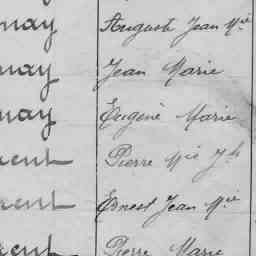 nay Auguste Jean Mie
nay Jean Marie
nay Eugène Marie
rent Pierre Mie Jh
rent Ernest Jean Mie
rent Pierre Marie